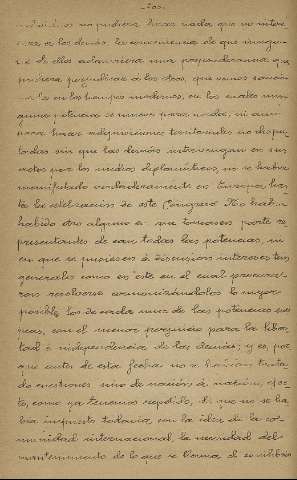 no pudiera hacer nada que no intere-
sara a los demás, la consecuencia de que ningu-
na de ellas adquiriera una preponderancia que
pudiera perjudicar a las otras, que vemos
en los tiempos modernos, en los cuales nin-
guna potencia se mueve para nada, ni aun
para hacer adquisiciones territoriales no dispu-
tadas sin que las demás intervengan en sus
actos por los medios diplomáticos, no se había
manifestado verdaderamente en Europa has-
ta la celebración de este Congreso. No había
habido otro alguno en que tomasen parte re-
presentantes de casi todas las potencias, ni
en que se pusiesen a discusión intereses tan
generales como en éste en el cual procura-
ron resolverse armonizándolos lo mejor
posible los de cada una de las potencias euro-
peas, con el menor perjuicio para la liber-
tad e independencia de las demás; y es, por-
que antes de esta fecha no se habían trata-
do cuestiones sino de nación a nación, es-
to, como ya tenemos repetido, a que no se ha-
bía impuesto todavía, con la idea de la co-
munidad internacional, la necesidad del
mantenimiento de lo que se llama el equilibrio